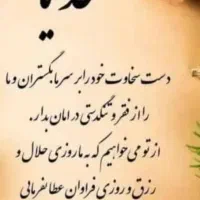 دست سخاوت خود را بر سر ما بگستران و ما
را از فقر و تنگدستی در امان بدار.
از تو می خواهیم که به ما روزی حلال و
رزق و روزی فراوان عطا بفرمایی